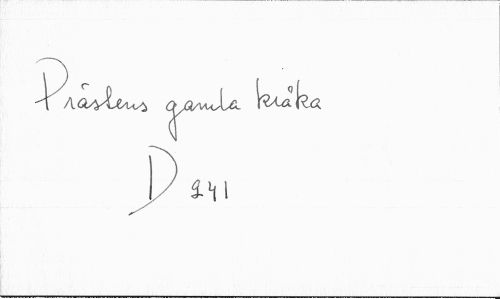 Prästens gamla kråka
D 241